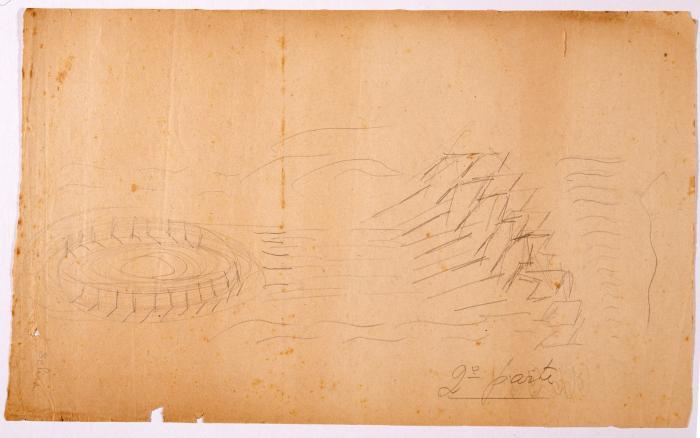 2º parte